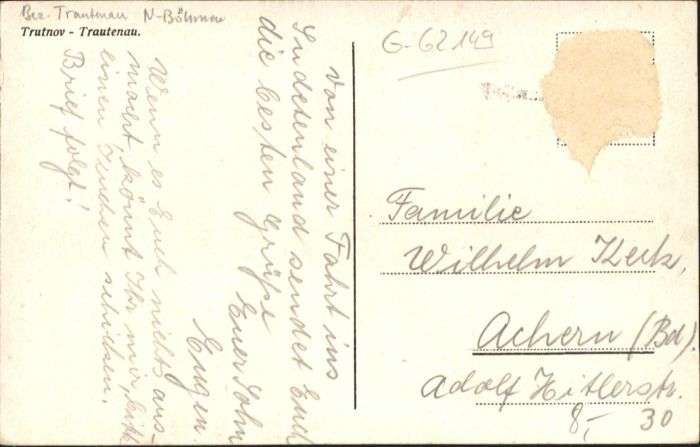 Bez. Trautenau N-Böhmen
Trutnov - Trautenau.
Von einer Fahrt ins
Sudetenland sendet Euch
die besten Grüße
Euer Sohn
Eugen.
Wenn es Euch nichts aus-
macht, könnt Ihr mir, bitte
einen Kuchen schicken.
Brief folgt!
G-62149
Familie
Wilhelm Keck,
Achern (Bd).
Adolf Hitlerstr.
8,- 30